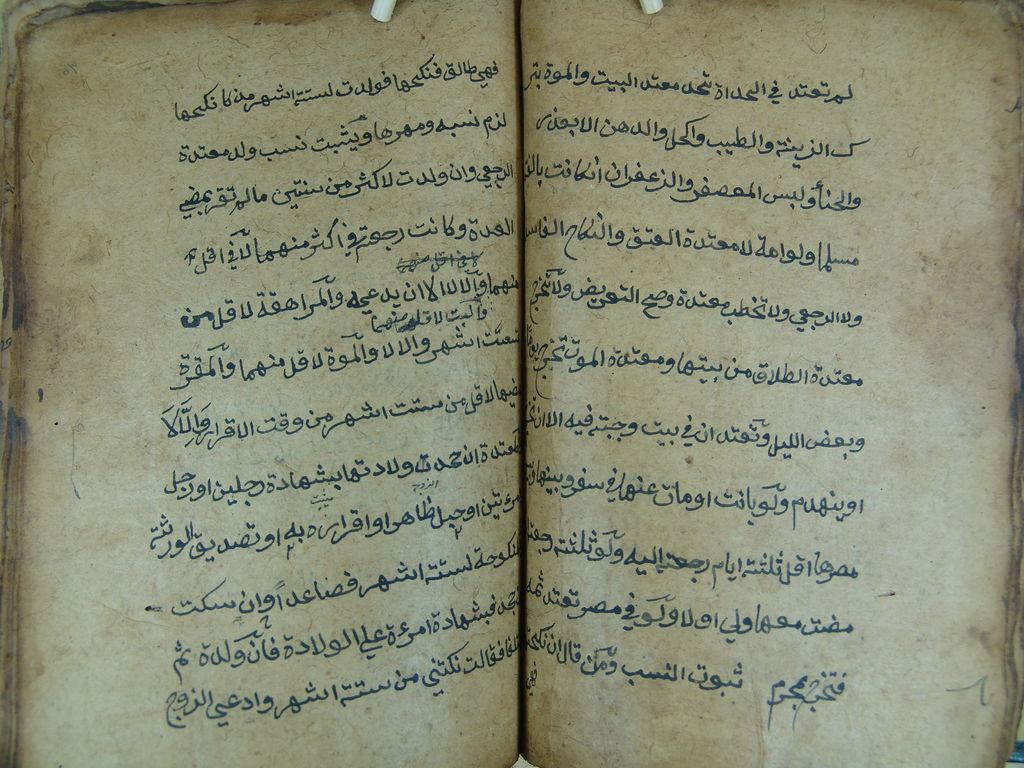 لم تعتد في العدة تحد معتدة البيت والموة بتر
ك الزينة والطيب والكحل والدهن الا بعذر
والحنأ ولبس المعصفر والزعفران ان كانت بالغ
مسلما ولو امة لا معتدة العتق والنكاح الفاسد
ولا الرجعي ولا تخطب معتدة وصح التعريض ولا تخرج
معتدة الطلاق من بيتها ومعتدة الموت تخرج يوما
وبعض الليل وتعتدان في بيت وجبت فيه الا ان تخرج
او ينهدم ولو بانت او مات عنها في سفر وبينها وبين
مصرها اقل ثلثة ايام رجعت اليه ولو ثلثة رجعت
مضت معها ولي او لا ولو في مصر تعتد ثمه
فتخرج بمحرم ثبوت النسب ومن قال ان نكحتها
فهي
فهي طالق فنكحها فولدت لستة اشهر مذ كا نكحها
لزم نسبه ومهرها ويثبت نسب ولد معتدة
الرجعي وان ولدت لاكثر من سنتين مالم تقر بمضي
العدة وكانت رجعة في اكثر منهما لا في اقل
منهما والا لا الا ان يدعيه والمراهقة لاقل من
والبت لاقل منهما
تسعت اشهر والا لا والموة لاقل منهما والمقرة
بمضيها لاقل من ستت اشهر من وقت الاقرار والا لا
والمعتدة ان جحدت ولادتها بشهادة رجلين او رجل
وامرءتين او حبل ظاهر او اقراره به او تصديق الورثة
والمنكوحة لستة اشهر فصاعدا وان سكت
وان جحد فبشهادة امرءة علي الولادة فان ولدة ثم
اختلفا فقالت نكحتني من ستة اشهر وادعي الزوج